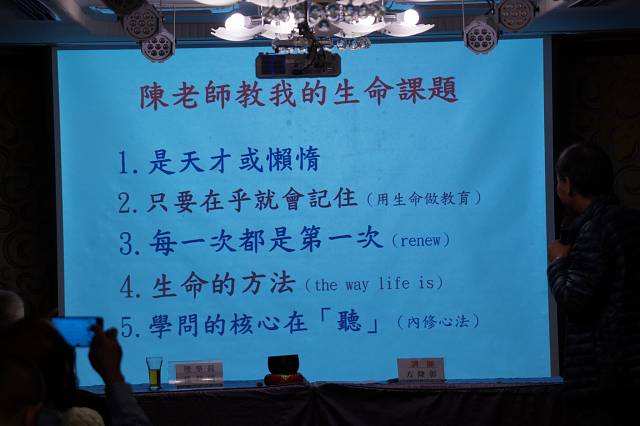 陳老師教我的生命課題
1. 是天才或懶惰
2. 只要在乎就會記住(用生命做教育)
3. 每一次都是第一次(renew)
4. 生命的方法(the way life is)
5. 學問的核心在「聽」(內修心法)